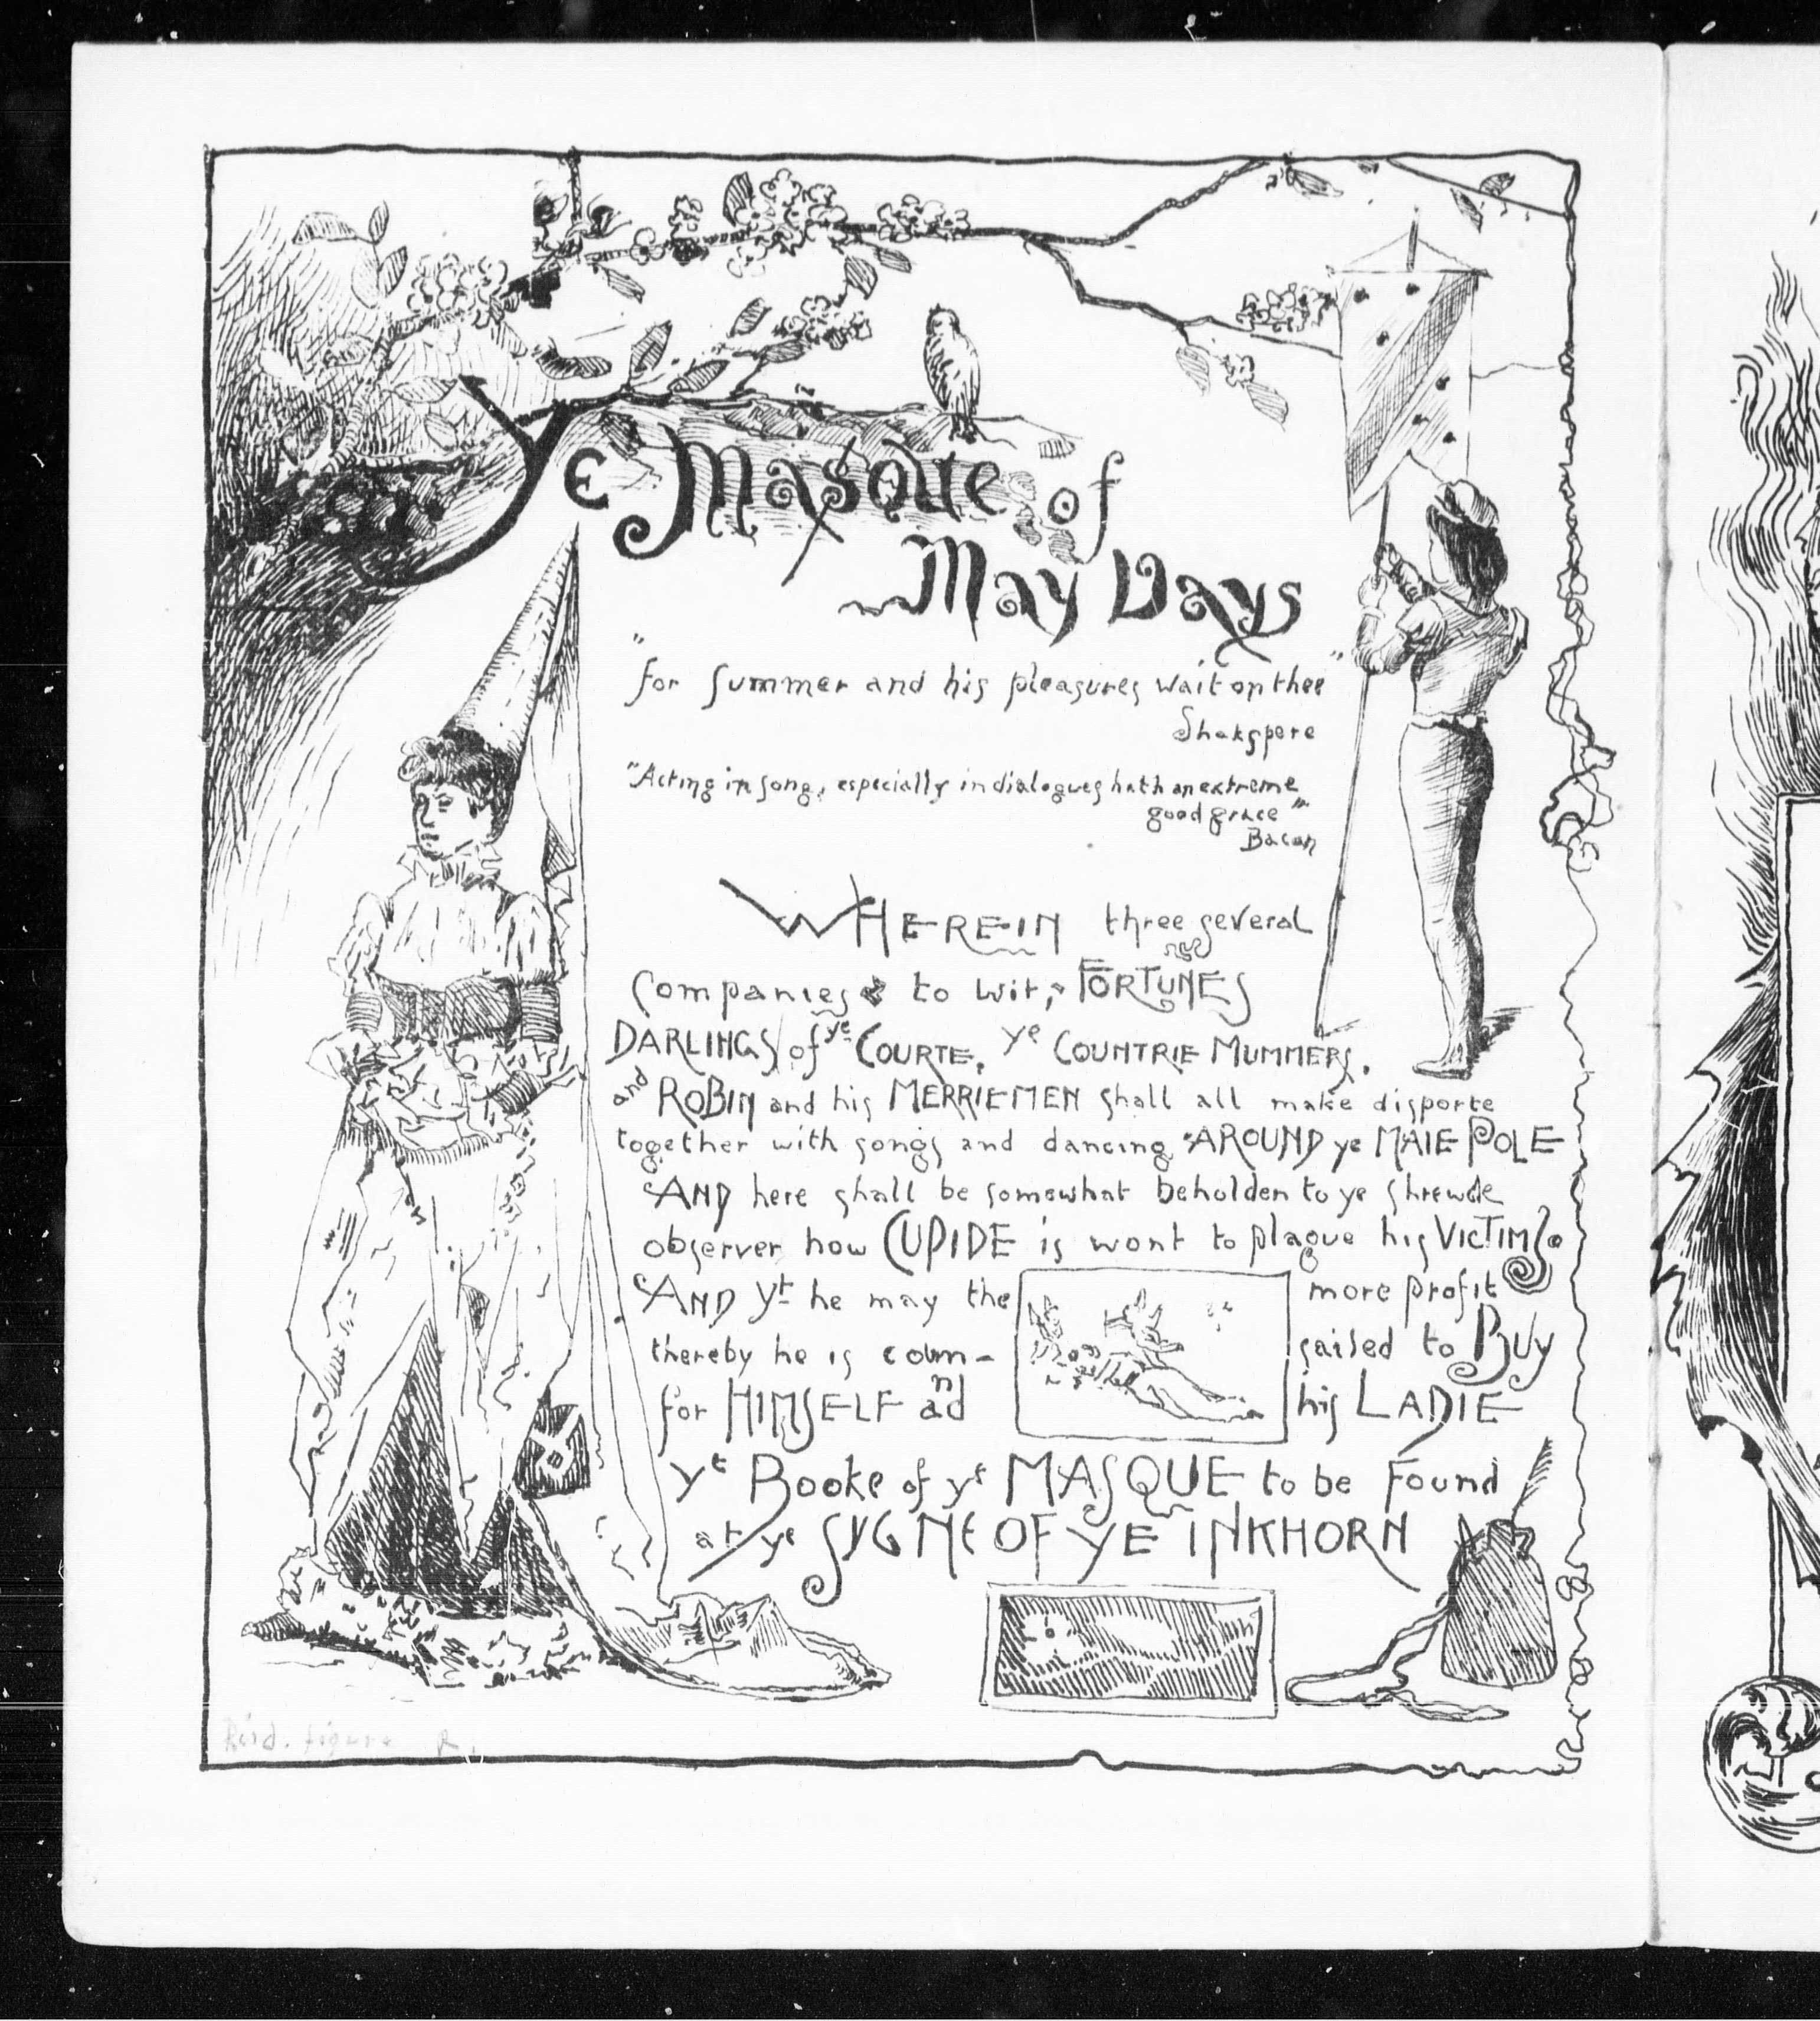 Ye Masque of
May Days
"for Summer and his pleasures wait on thee"
Shakspere
"Acting in song, especially in dialogues hath an extreme
good grace"
Bacon
WHEREIN three several
Companies to wit, FORTUNES
DARLINGS of ye COURTE, ye COUNTRIE MUMMERS,
and ROBIN and his MERRIEMEN shall all make disporte
together with songs and dancing AROUND ye MAIE POLE
AND here shall be somewhat beholden to ye shrewde
observer how CUPIDE is wont to plague his VICTIMS
AND yt he may the more profit
thereby he is coun- sailed to Buy
for HIMSELF and his LADIE
yt Booke of ye MASQUE to be Found
at ye SYGNE OF YE INKHORN
Bird. figure R.